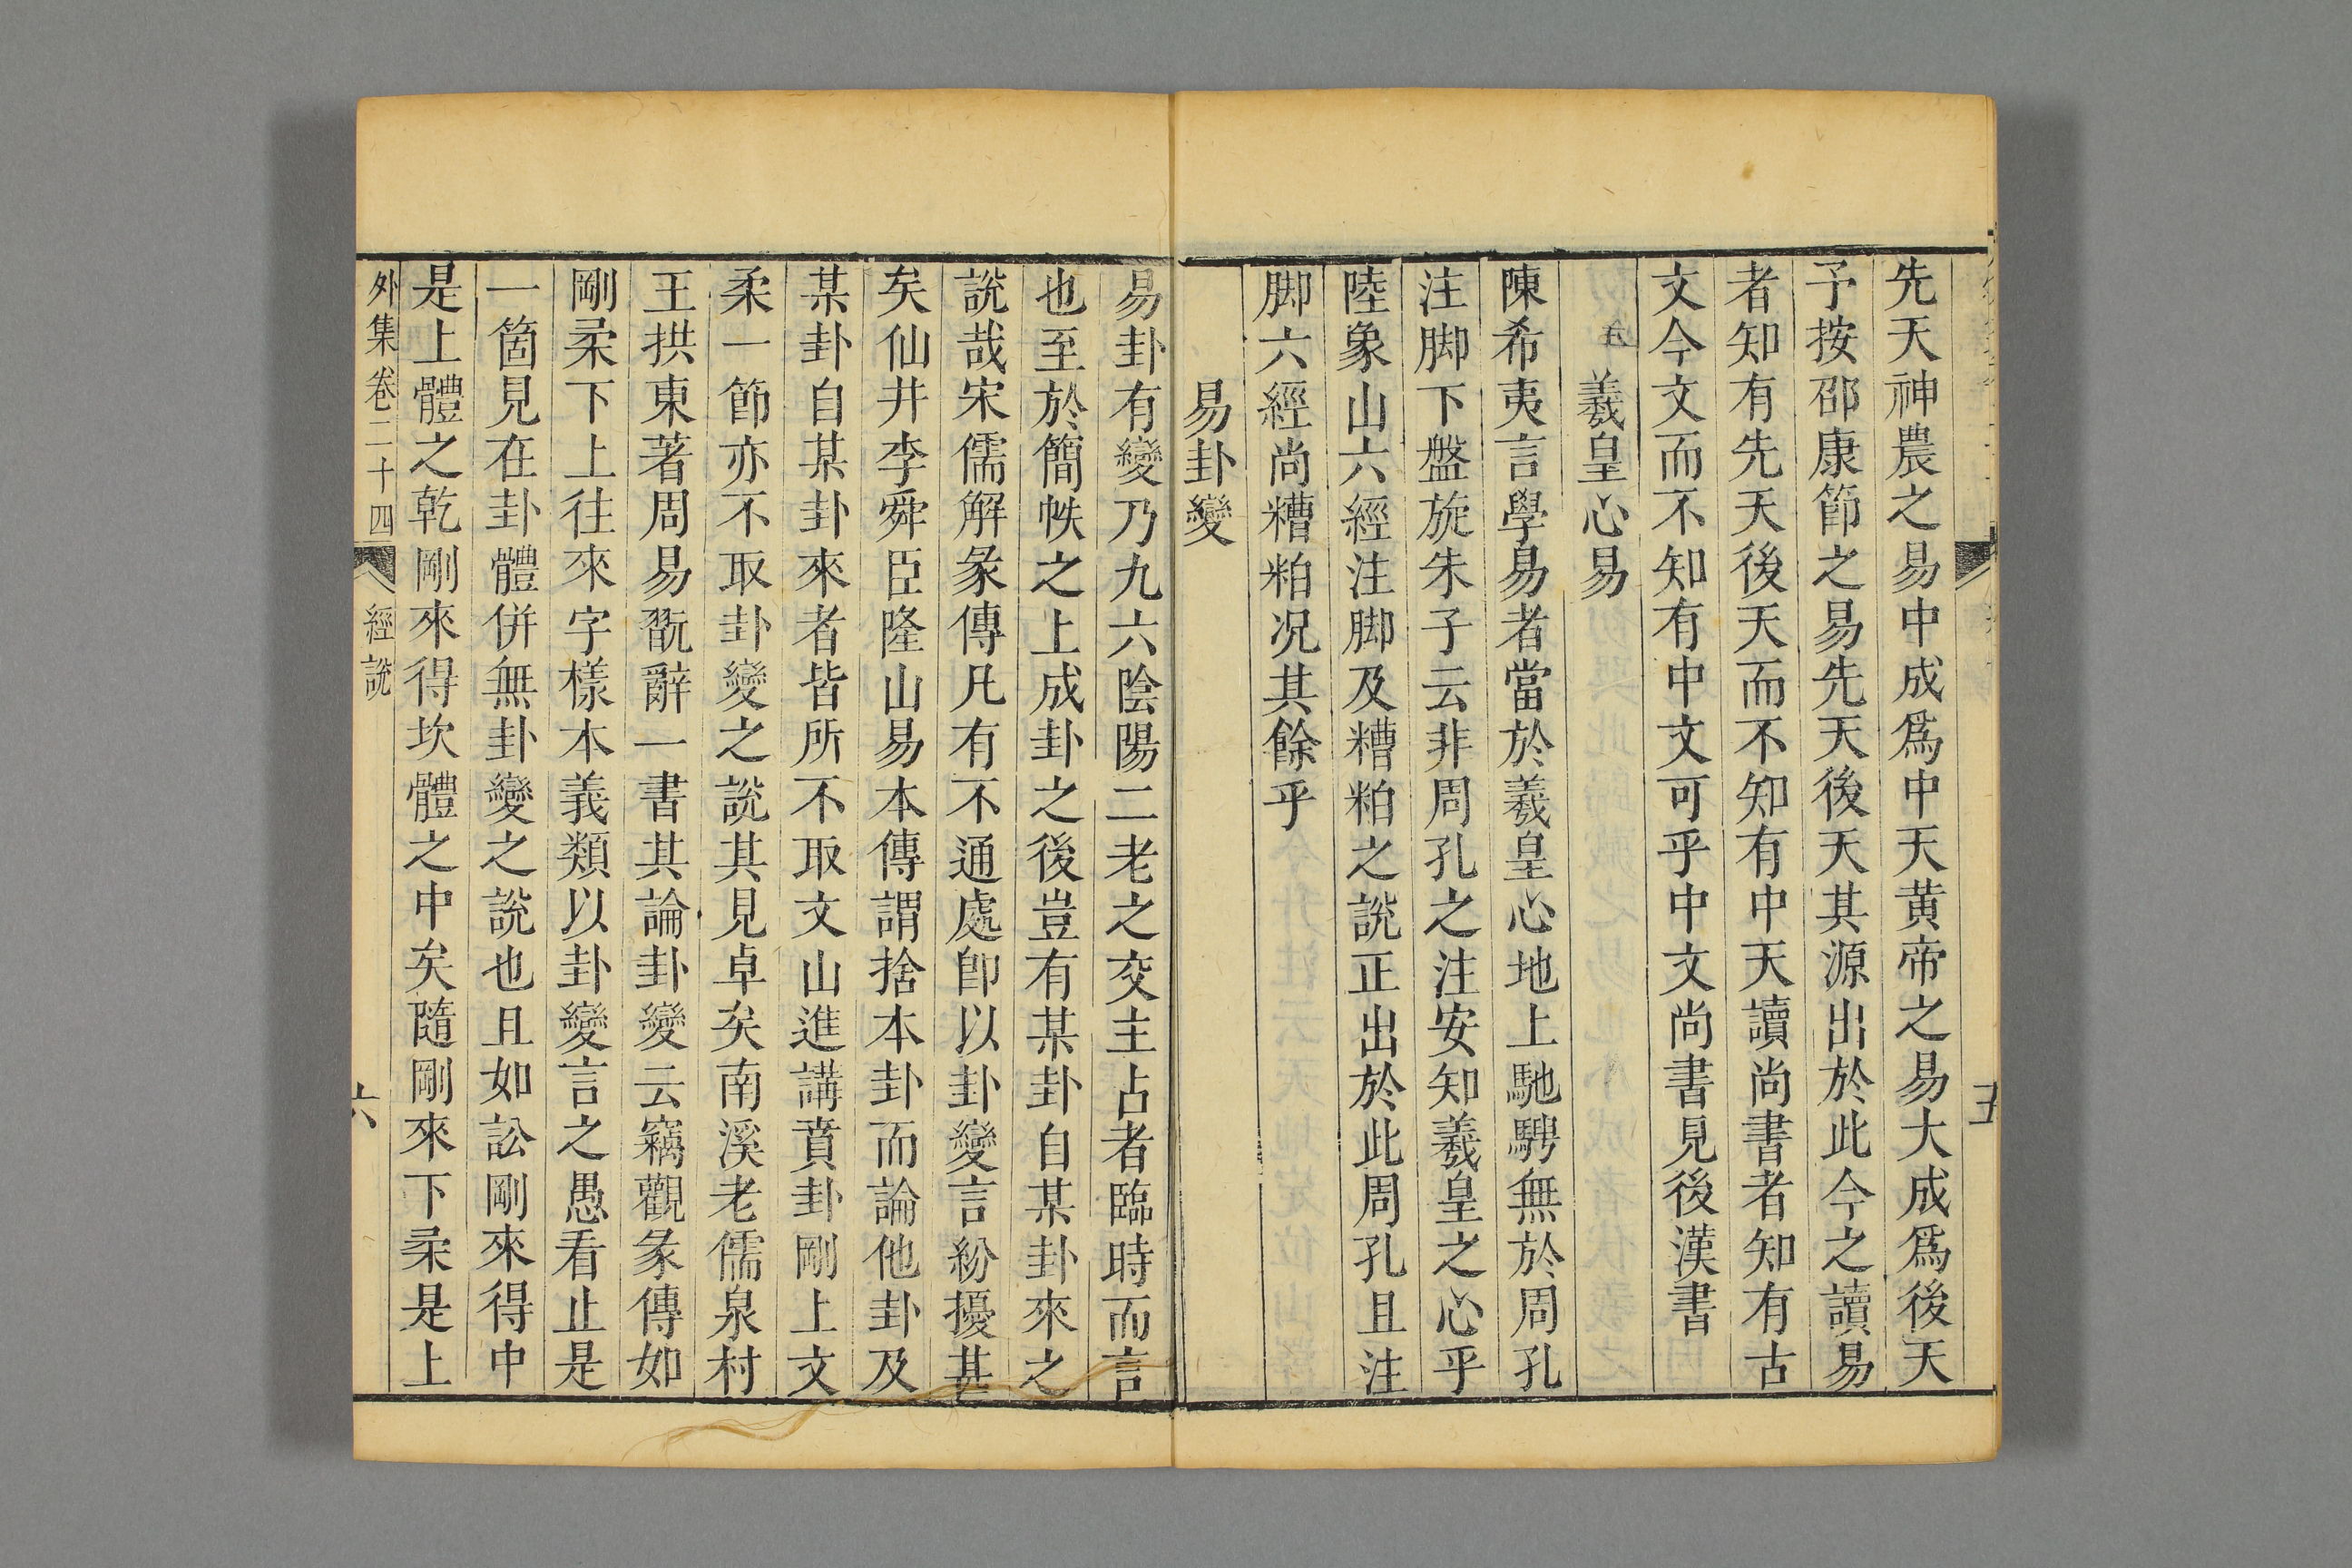 先天神農之易中成爲中天黄帝之易大成爲後天
予按邵康節之易先天後天其源出於此今之讀易
者知有先天後天而不知有中天讀尚書者知有古
文今文而不知有中文可乎中文尚書見後漢書
羲皇心易
陳希夷言學易者當於羲皇心地上馳騁無於周孔
注脚下盤旋朱子云非周孔之注安知羲皇之心乎
陸象山六經注脚及糟粕之說正出於此周孔且注
脚六經尚糟粕況其餘乎
易卦變
易卦有變乃九六陰陽二老之交主占者臨時而言
也至於簡帙之上成卦之後豈有某卦自某卦來之
說哉宋儒解彖傳凡有不通處卽以卦變言紛擾甚
矣仙井李舜臣隆山易本傳謂捨本卦而論他卦及
某卦自某卦來者皆所不取文山進講賁卦剛上文
柔一節亦不取卦變之說其見卓矣南溪老儒泉村
王拱東著周易翫辭一書其論卦變云竊觀彖傳如
剛柔下上往來字樣本義類以卦變言之愚看止是
一箇見在卦體併無卦變之說也且如訟剛來得中
是上體之乾剛來得坎體之中矣隨剛來下柔是上
外集卷二十四
經說
六